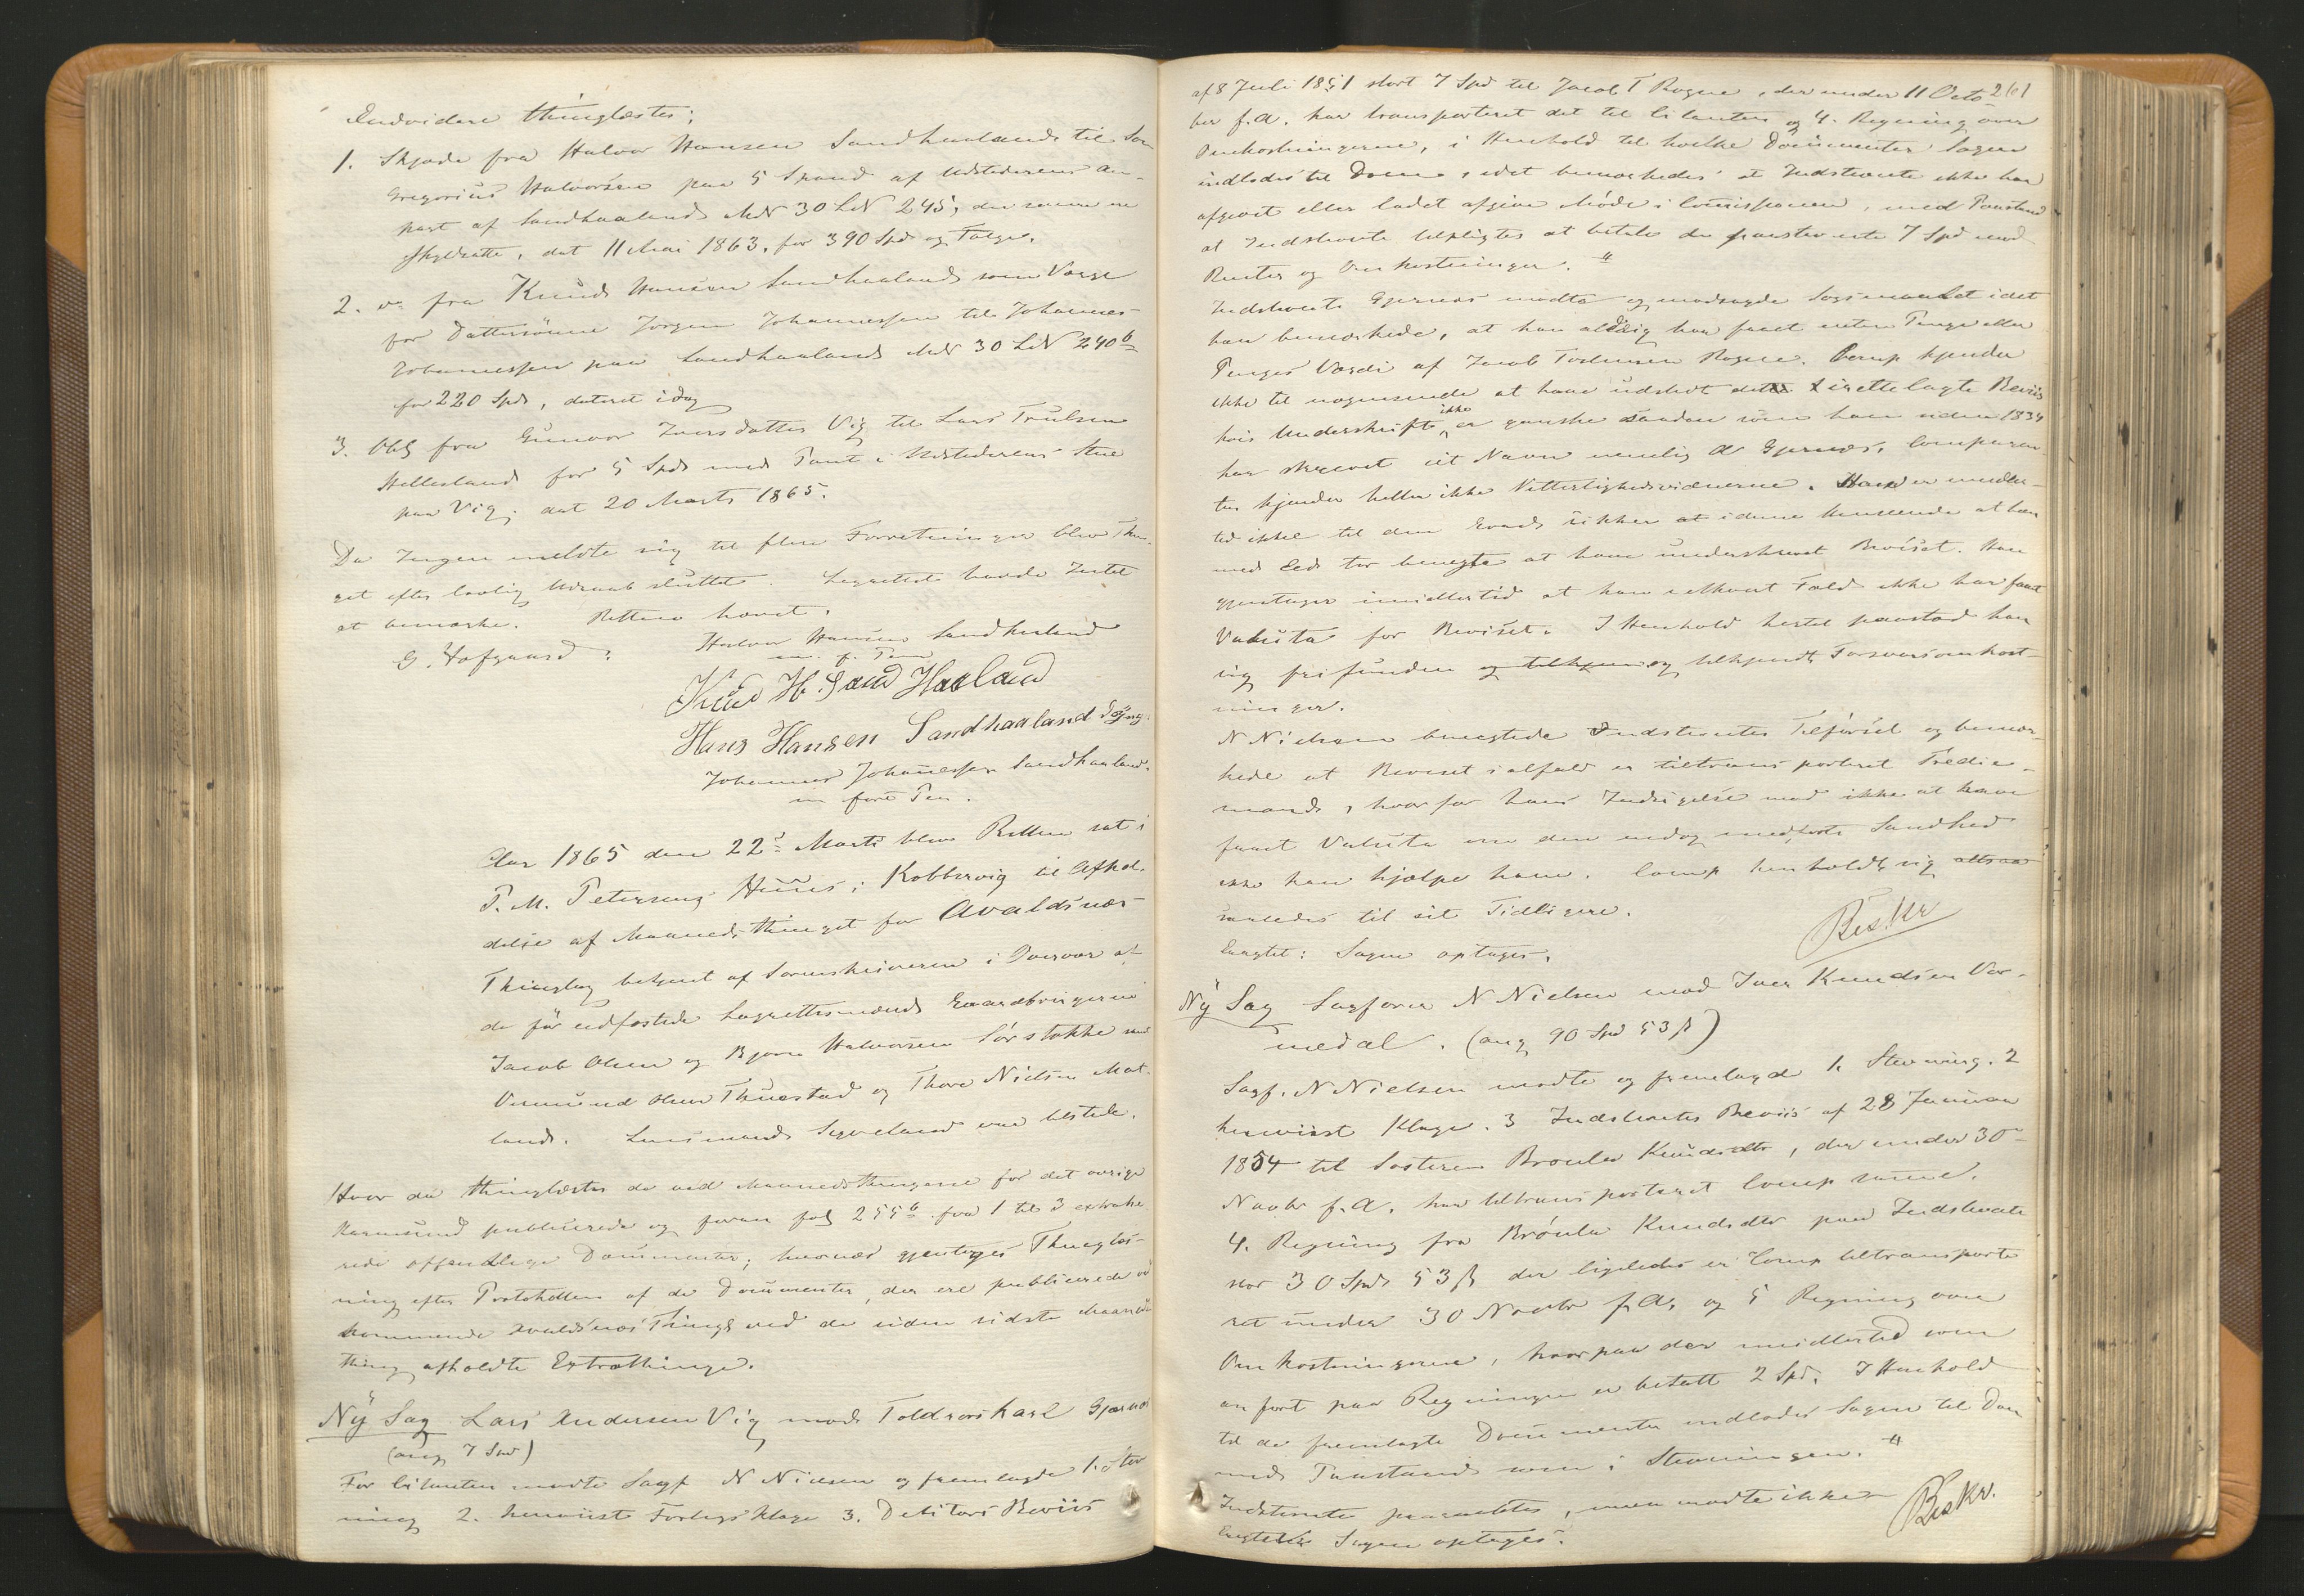 Endvidere thinglæstes:
1. Skjøde fra Halvor Hansen Sandhaaland til Søn
Gregorius Halvorsen paa 5 Spand af Udstederens an-
part af Sandhaaland MN 30 LN 245, der senere er
skyldsatte, dat 11 Mai 1863, for 390 Spd og Følge.
2. do fra Knud Hansen Sandhaaland som Værge
for Dattersønnen Jørgen Johannessen til Johannes
Johannessen paa Sandhaaland MN 30 LN 240b
for 220 Spd, dateret idag
3. Obl fra Gunvor Iversdatter Vig til Lars Trulsen
Hellesland for 5 Spd med Pant i Udstederens Stue
paa Vig, dat 20 Marts 1865.
Da Ingen meldte sig til flere Forretninger blev Thin-
get efter lovlig Udraab sluttet. Lagrettet havde Intet
at bemærke. Retten hævet.
G. Hofgaard: Halvor Hansen Sandhaaland
m. f. Pen
Knud H. Sand Haaland
Hans Hansen Sandhaaland
Johannes Johannessen Sandhaaland
m ført Pen.
Aar 1865 den 22de Marts blev Retten sat i
P. M. Petersens Huus i Kobbervig til Afhol-
delse af Maanedsthinget for Avaldsnæs
Thinglag betjent af Sorenskriveren i Overvær af
de før edfæstede Lagrettesmænd Gaardbrugerne
Jacob Olsen og Bjørn Halvorsen Sørstokke med
Vermund Olsen Thuestad og Thore Nielsen Mat-
land. Lensmand Sigveland var tilstede.
Hvor da thinglæstes de ved Maanedsthingene for det øvrige
Karmsund publicerede og foran fol 255b fra 1 til 3 extrahe-
rede offentlige Documenter; hvornæst gjentoges Thinglæs-
ning efter Protokollen af de Documenter, der ere publicerede ved
kommende Avaldsnæs Thingl ved de siden sidste Maaneds-
thing afholdte Extrathinge.
Ny Sag Lars Andersen Vig mod Toldroerskarl Gjernæs
(ang 7 Spd)
For Citanten mødte Sagf N Nielsen og fremlagde 1. Stev-
ning 2. henviist Forligsklage 3. Debitors Beviis
261
af 8 Juli 1851 stort 7 Spd til Jacob T Rogne, der under 11 Octo-
ber f. A. har transporteret det til Citanten og 4. Regning over
Omkostningerne, i Henhold til hvilke Documenter Sagen
indlodes til Doms, idet bemærkedes at Indstevnte ikke har
afgivet eller ladet afgive Møde i Comissionen, med Paastand
at Indstevnte tilpligtes at betale de paastevnte 7 Spd med
Renter og Omkostninger.
Indstevnte Gjernæs mødte og modsagde Søgsmaalet idet
han bemærkede, at han aldrig har faaet enten Penge eller
Penges Værdi af Jacob Rogne. Comp kjender
ikke til nogensinde at have udstedt det irettelagte Beviis
hvis Underskrift ikke er ganske saadan som han siden 1834
har skrevet sit Navn nemlig A Gjernæs. Comparen-
ten kjender heller ikke Vitterlighedsvidnerne. Han er imidler-
tid ikke til den Grad sikker at i denne Henseende at han
med Eed tør benegte at have underskrevet Beviset. Han
gjentager imidlertid at han i ethvert Fald ikke har faaet
Valuta for Beviset. I Henhold hertil paastod han
sig frifunden og tilkjendt Forsvarsomkost-
ninger.
N Nielsen benegtede Indstevntes Tilførsel og bemær-
kede at Beviset i alfald er tiltransporteret Tredie-
mand, hvorfor hans Indsigelse mod ikke at have
faaet Valuta om den endog medførte Sandhed
ikke kan hjælpe ham. Comp henholdt sig altsaa
saaledes til sit Tidligere.
Eragtet: Sagen optages. Beskr
Ny Sag Sagfører N Nielsen mod Iver Knudsen Vor-
medal. (ang 90 Spd 53 ß)
Sagf. N Nielsen mødte og fremlagde 1. Stevning. 2
henviist Klage. 3 Indstevntes Beviis af 28 Januar
1854 til Søsteren Brønla Knudsdtr, der under 30te
Novbr f. A. har tiltransporteret Comp samme.
4. Regning fra Brønla Knudsdtr paa Indstevnte
stor 30 Spd 53 ß der ligeledes er Comp tiltransporte-
ret under 30 Novbr f. A. og 5 Regning over
Omkostningerne, hvorpaa der imidlertid som
anført paa Regningen er betalt 2 Spd. I Henhold
til de fremlagte Documenter indlodes Sagen til Dom
med Paastand som i Stevningen.
Indstevnte paaraabtes, men mødte ikke
Eragtet: Sagen optages. Beskr.